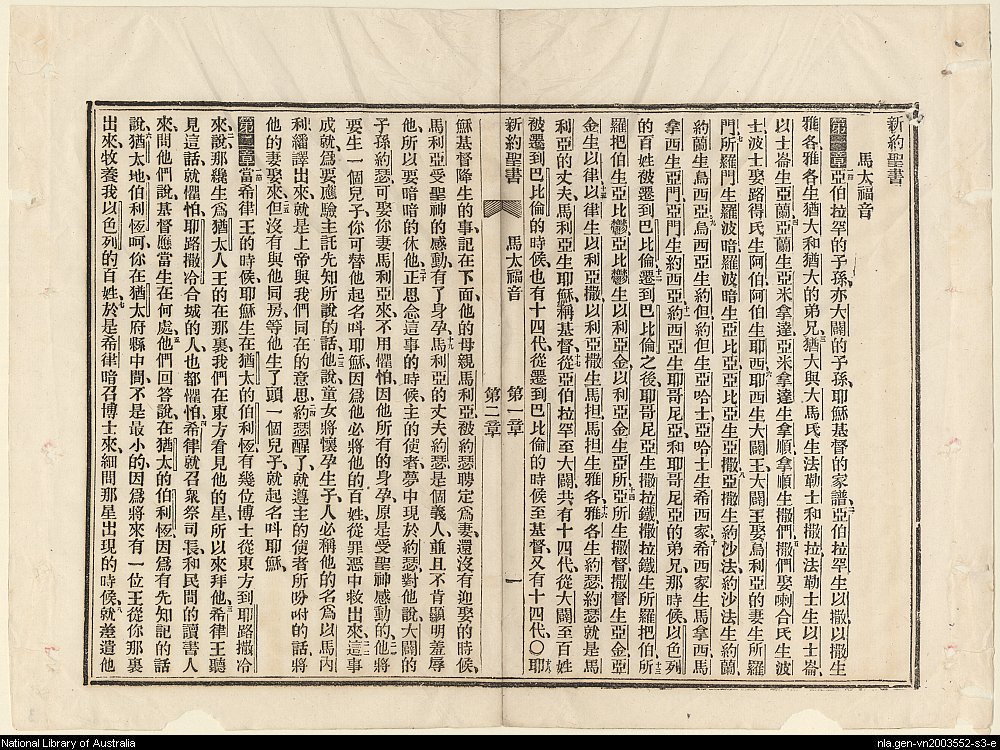 新約聖書
馬太福音
第一章 亞伯拉罕的子孫亦大闢的子孫耶穌基督的家譜亞伯拉罕生以撒以撒生
雅各雅各生猶大和猶大的弟兄猶大與大馬氏生法勒士和撒拉法勒士生以士崙
以士崙生亞蘭亞蘭生亞米拿達亞米拿達生拿順拿順生撒們撒們娶喇合氏生波
士波士娶路得氏生阿伯阿伯生耶西耶西生大闢王大闢王娶烏利亞的妻生所羅
門所羅門生羅波暗羅波暗生亞比亞亞比亞生亞撒亞撒生約沙法約沙法生約蘭
約蘭生烏西亞烏西亞生約但約但生亞哈士亞哈士生希西家希西家生馬拿西馬
拿西生亞門亞門生約西亞約西亞生耶哥尼亞和耶哥尼亞的弟兄那時候以色列
的百姓被遷到巴比倫遷到巴比倫之後耶哥尼亞生撒拉鐵撒拉鐵生所羅把伯所
羅把伯生亞比鬱亞比鬱生以利亞金以利亞金生亞所亞所生撒督撒督生亞金亞
金生以律以律生以利亞撒以利亞撒生馬担馬担生雅各雅各生約瑟約瑟就是馬
利亞的丈夫馬利亞生耶穌稱基督從亞伯拉罕至大闢共有十四代從大闢至百姓
被遷到巴比倫的時候也有十四代從遷到巴比倫的時候至基督又有十四代〇耶
新約聖書 馬太福音 第一章 一
第二章
穌基督降生的事記在下面他的母親馬利亞被約瑟聘定爲妻還沒有迎娶的時候
馬利亞受聖神的感動有了身孕馬利亞的丈夫約瑟是個義人並且不肯顯明羞辱
他所以要暗暗的休他正思念這事的時候主的使者夢中現於約瑟對他說大闢的
子孫約瑟可娶你妻馬利亞來不用懼怕因他所有的身孕原是受聖神感動的他將
要生一個兒子你可替他起名呌耶穌因爲他必將他的百姓從罪惡中救出來這事
成就爲要應驗主託先知所說的話他說童女將懷孕生子人必稱他的名爲以馬內
利繙譯出來就是上帝與我們同在的意思約瑟醒了就遵主的使者所吩咐的話將
他的妻娶來但沒有與他同房等他生了頭一個兒子就起名呌耶穌
第二章 一節 當希律王的時候耶穌生在猶太的伯利恆有幾位博士從東方到耶路撒冷
來說那纔生爲猶太人王的在那裏我們在東方看見他的星所以來拜他希律王聽
見這話就懼怕耶路撒冷合城的人也都懼怕希律就召衆祭司長和民間的讀書人
來問他們說基督應當生在何處他們回答說在猶太的伯利恆因爲有先知記的話
說猶太地伯利恆呵你在猶太府縣中間不是最小的因爲將來有一位王從你那裏
出來牧養我以色列的百姓於是希律暗召博士來細問那星出現的時候就差遣他
National Library of Australia
nla.gen-vn2003552-s3-e